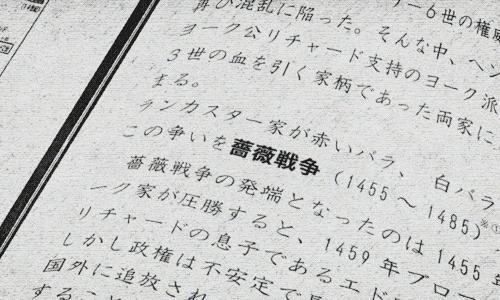 再び混乱に陥った。そんな中、ヘン
リー6世の権威
ヨーク公リチャード支持のヨーク派
3世の血を引く家柄であった両家に
まる。
ランカスター家が赤いバラ、白バラ
この争いを薔薇戦争(1455～1485)※①
薔薇戦争の発端となったのは1455
ーク家が圧勝すると、1459年ブロー
リチャードの息子であるエド
しかし政権は不安定で
国外に追放され
すること